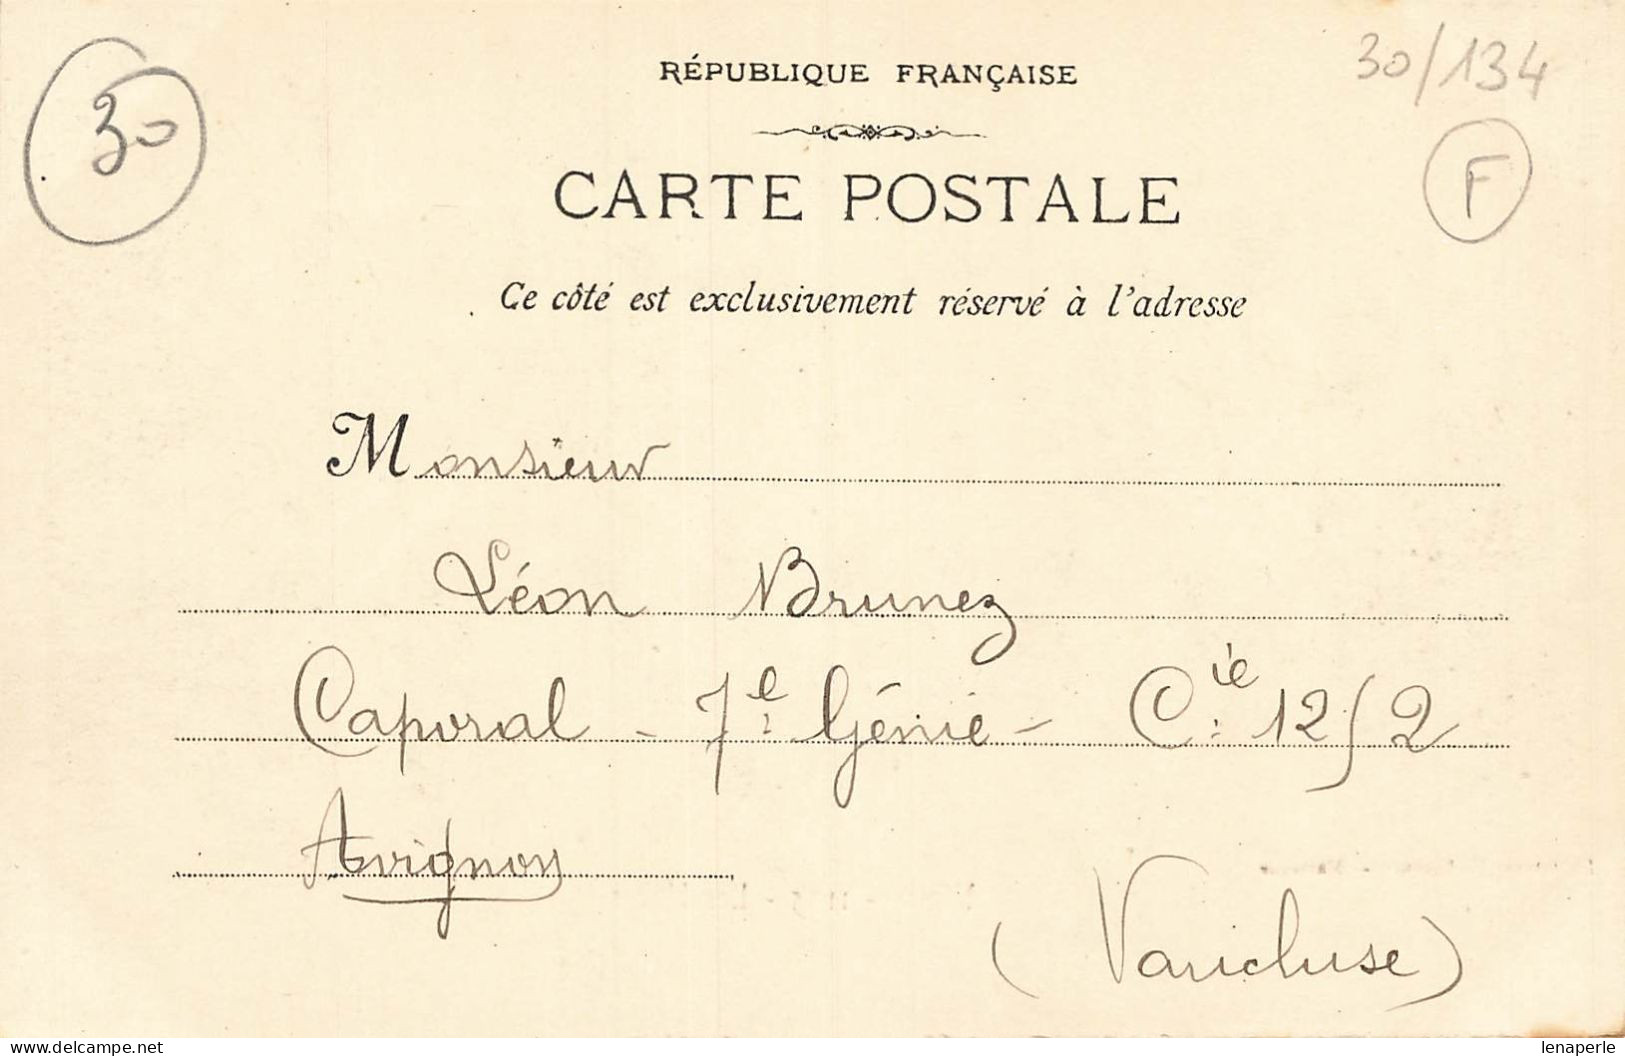 30
30/134
F
RÉPUBLIQUE FRANÇAISE
CARTE POSTALE
Ce côté est exclusivement réservé à l'adresse
Monsieur
Léon Brunez
Caporal - 7e Génie - Cie 12/2
Avignon
(Vaucluse)
lenaperle